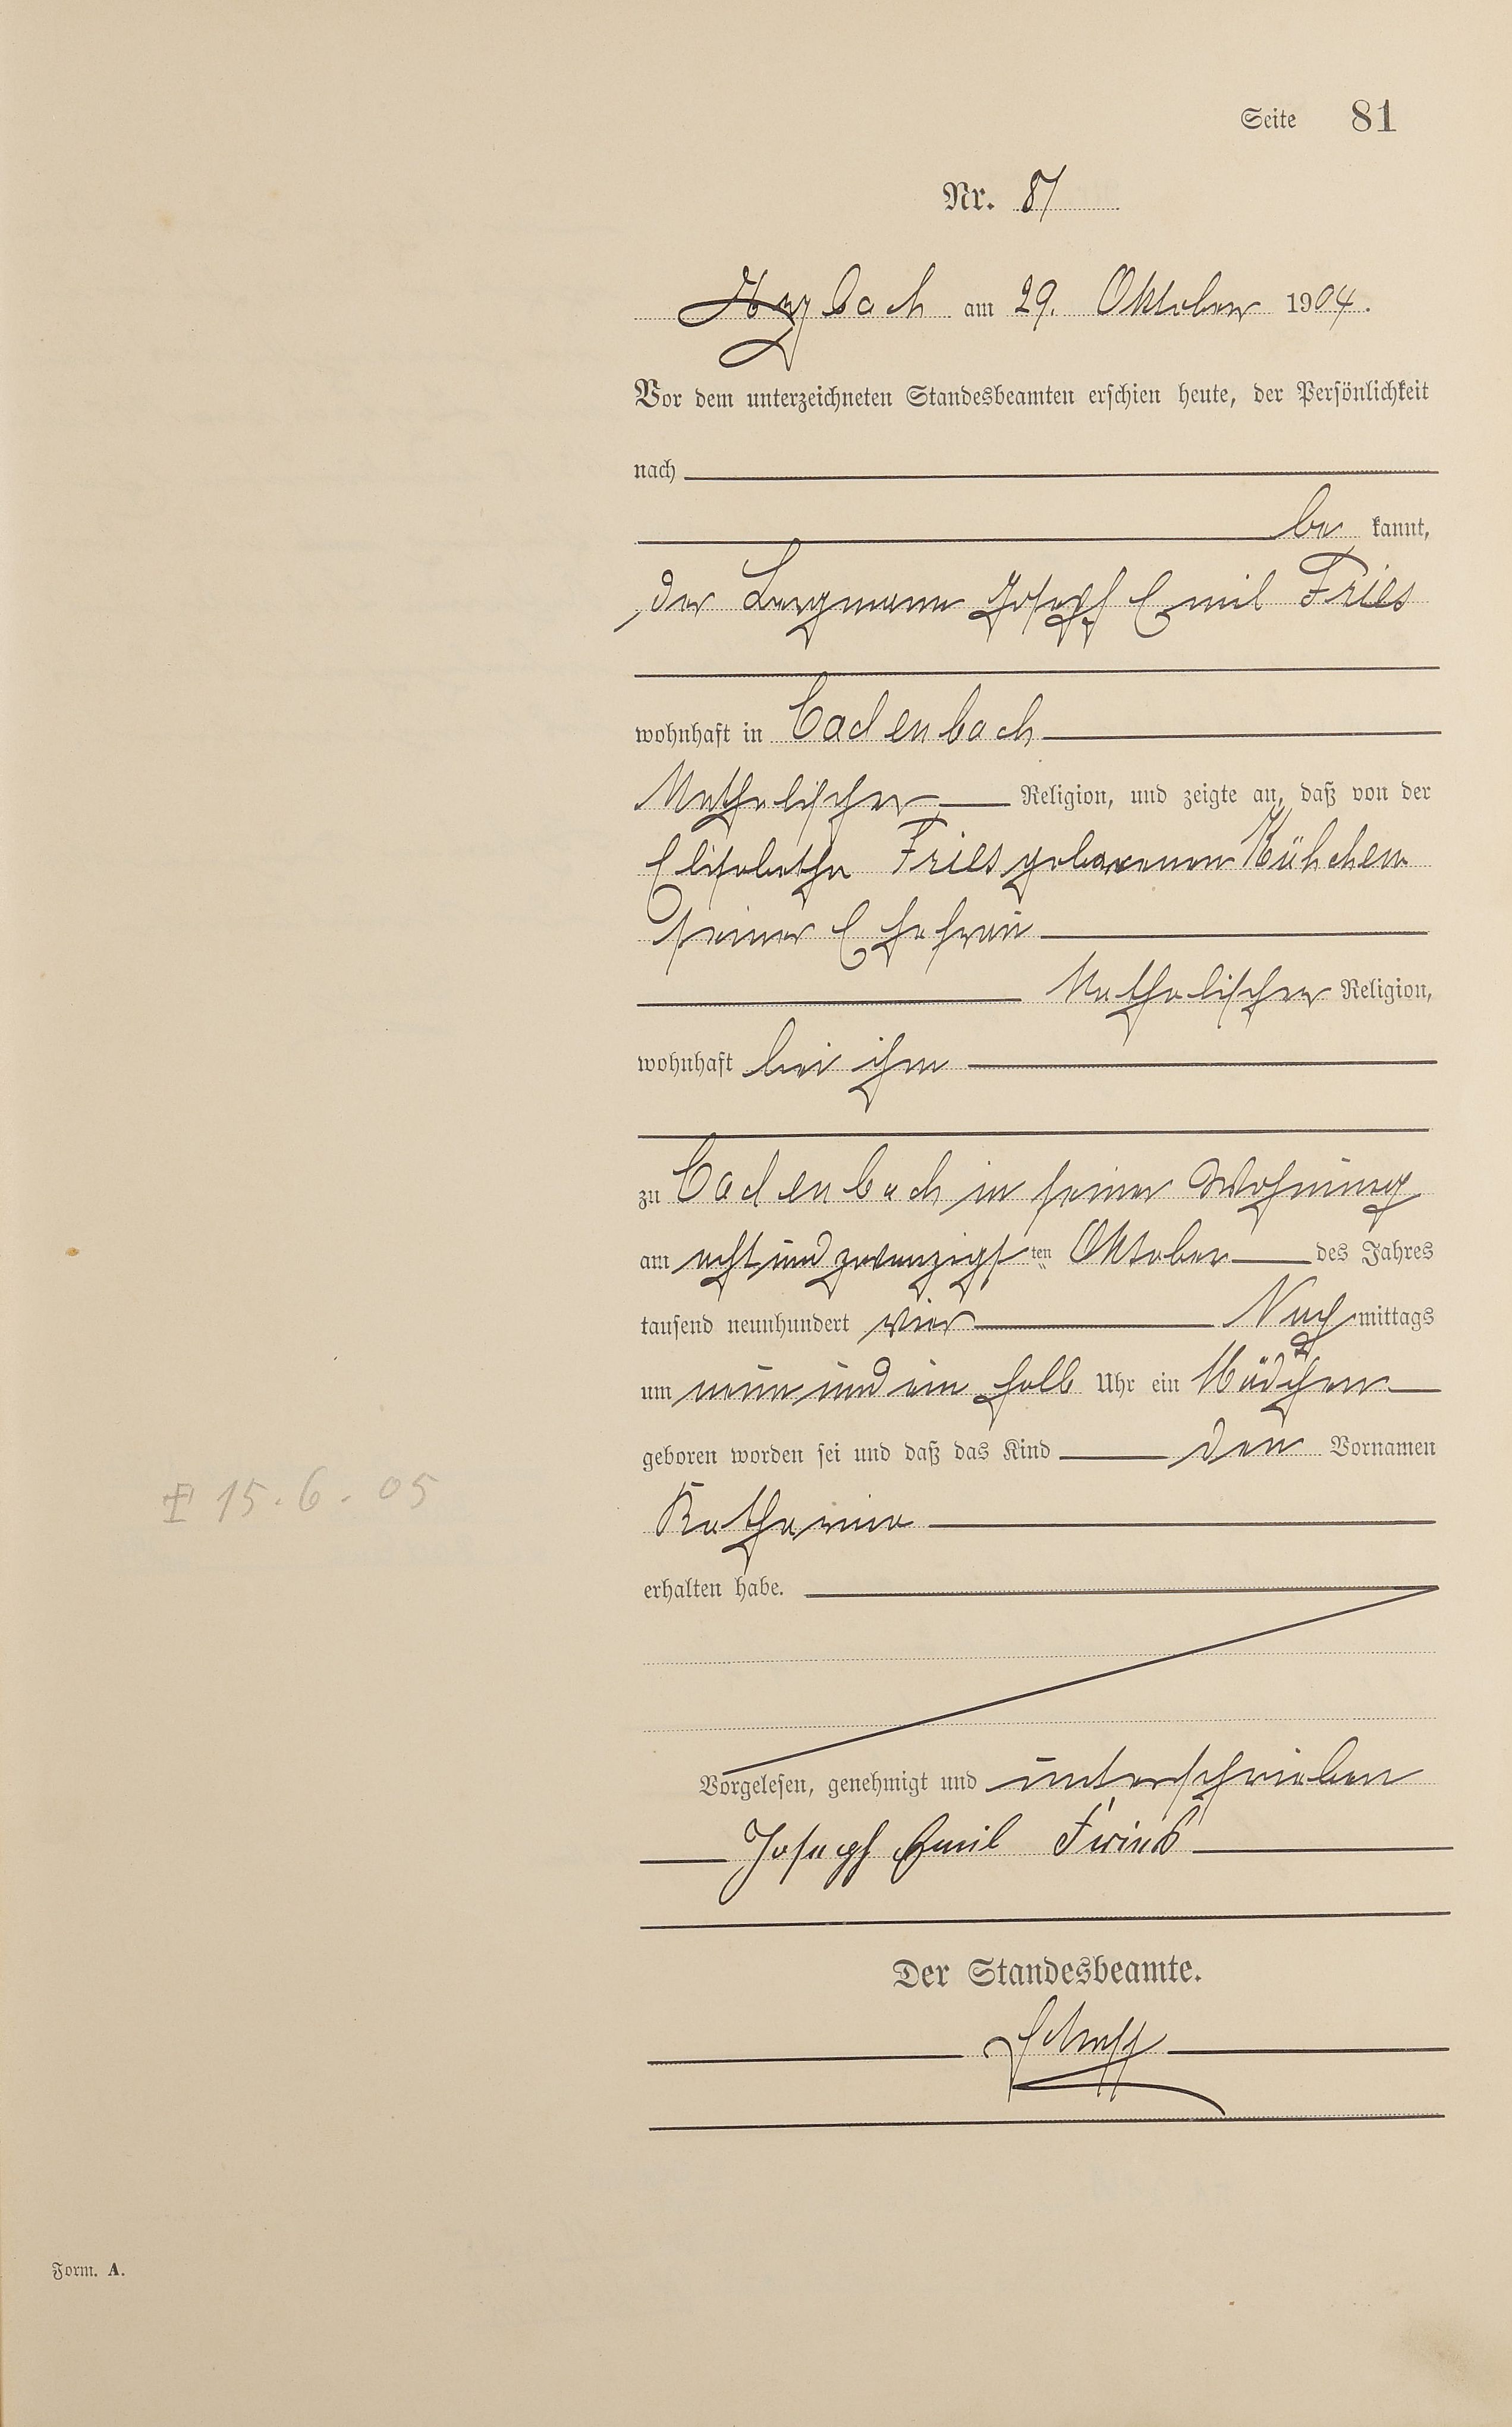 Seite 81
Nr. 81
Arzbach am 29. Oktober 1904.
Vor dem unterzeichneten Standesbeamten erschien heute, der Persönlichkeit
nach
be kannt,
der Bergmann Josepf Emil Fries
wohnhaft in Cadenbach
Katholischer Religion, und zeigte an, daß von der
Elisabetha Fries geborenen Kühchen
seiner Ehefrau
Katholischer Religion,
wohnhaft bei ihm
zu Cadenbach in seiner Wohnung
am acht und zwanzigsten Oktober des Jahres
tausend neunhundert vier Nach mittags
um neun und ein halb Uhr ein Mädchen
geboren worden sei und daß das Kind den Vornamen
Katharina
† 15.6.05
erhalten habe.
Vorgelesen, genehmigt und unterschrieben
Joseph Emil Fries
Der Standesbeamte.
Form. A.